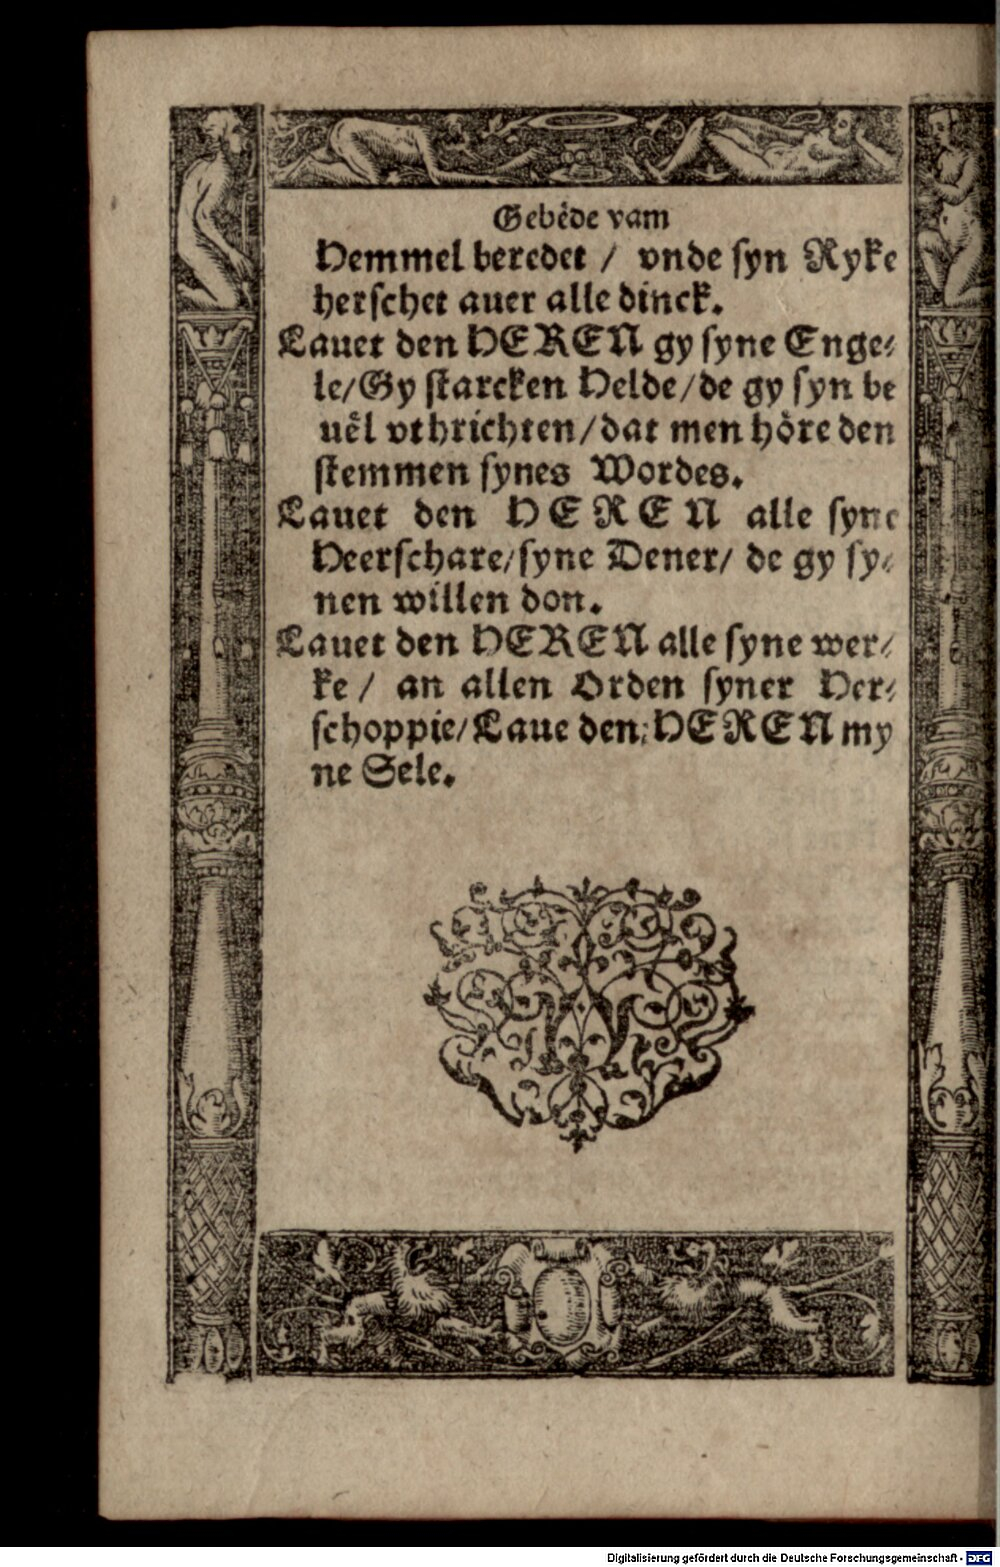 Gebêde vam
Hemmel beredet / vnde ſyn Ryke
herſchet auer alle dinck.
Lauet den HEREN gy ſyne Enge⸗
le/Gy ſtarcken Helde/de gy ſyn be
uêl vthrichten/dat men hôre den
ſtemmen ſynes Wordes.
Lauet den HEREN alle ſyne
Heerſchare/ſyne Dener/ de gy ſy⸗
nen willen don.
Lauet den HEREN alle ſyne wer⸗
ke / an allen Orden ſyner Her⸗
ſchoppie/Laue den:HEREN my
ne Sele.
Digitalisierung gefördert durch die Deutsche Forschungsgemeinschaft - DFG